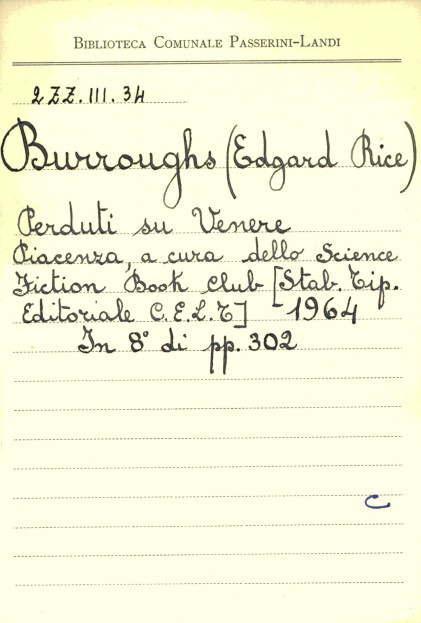 BIBLIOTECA COMUNALE PASSERINI-LANDI
2ZZ.III.34
Burroughs (Edgard Rice)
Perduti su Venere
Piacenza, a cura dello Science
Fiction Book Club [Stab. Tip.
Editoriale C.E.L.T] - 1964
In 8° di pp. 302
C